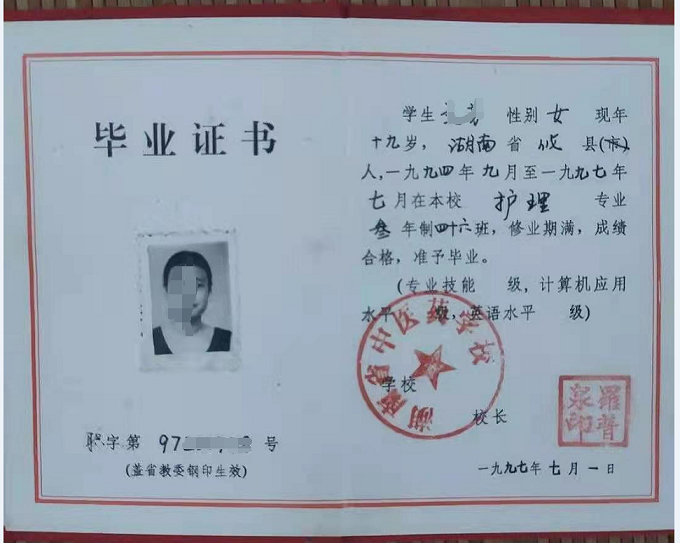 毕业证书
职字第 97 号
(盖省教委钢印生效)
学生 性别 女 现年
十九岁，湖南省攸县(市)
人,一九九四年九月至一九九七年
七月在本校 护理 专业
叁年制四十六班，修业期满，成绩
合格，准予毕业。
(专业技能 级，计算机应用
水平 级，英语水平 级)
湖南省中医药学校
学校
校长
罗普泉印
一九九七年七月一日